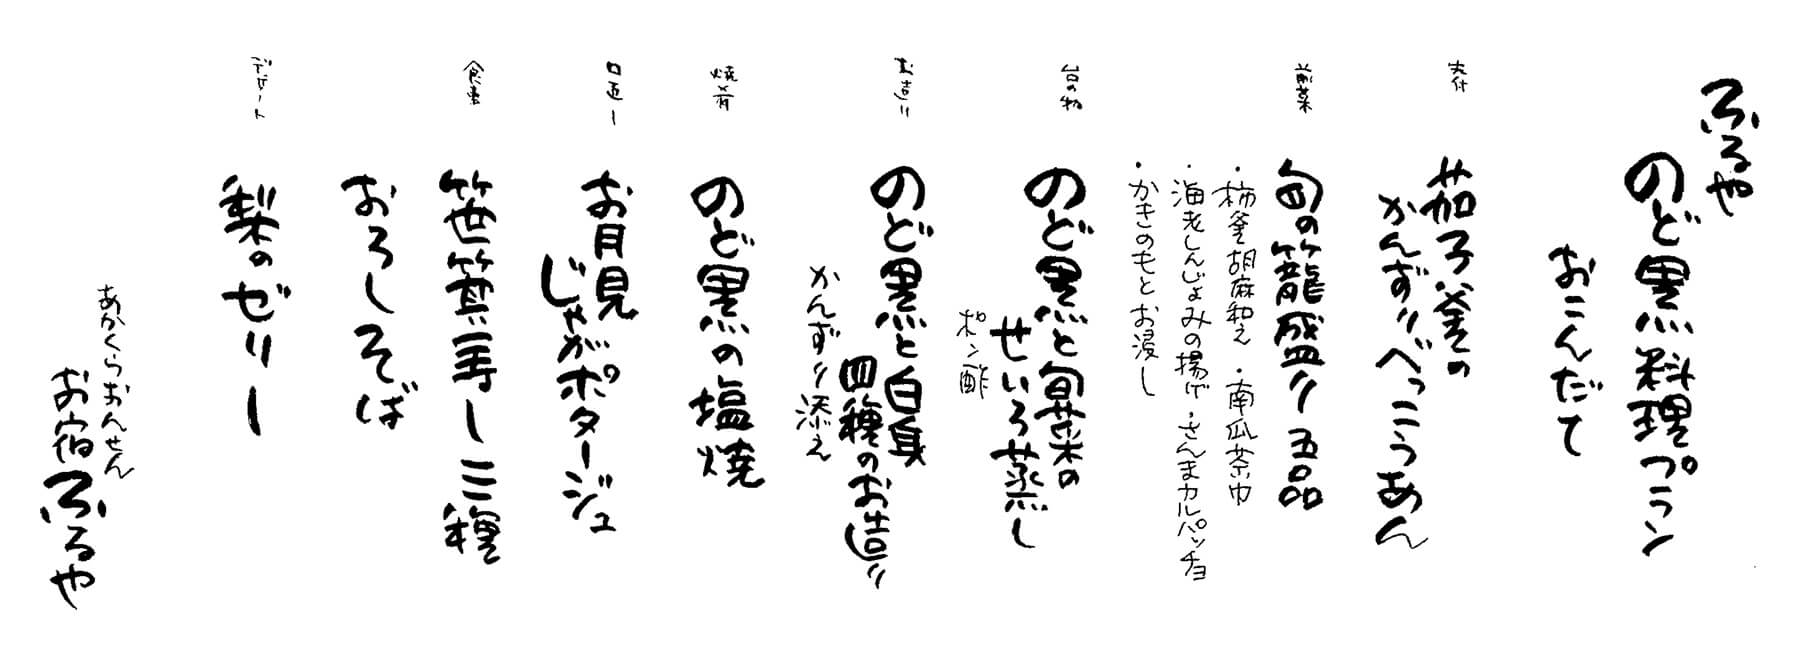 ふるや
のど黒料理プラン
おこんだて
先付
茄子釜の
かんずりべっこうあん
前菜
旬の籠盛り 五品
・柿釜胡麻和え ・南瓜茶巾
・海老しんじょみの揚げ ・さんまカルパッチョ
・かきのもとお浸し
台の物
のど黒と旬菜の
せいろ蒸し
ポン酢
お造り
のど黒と白身
四種のお造り
かんずり添え
焼肴
のど黒の塩焼
口直し
お月見
じゃがポタージュ
食事
笹寿し三種
おろしそば
デザート
梨のゼリー
あかくらおんせん
お宿ふるや